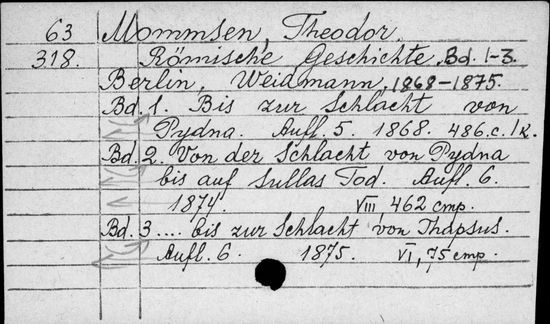 63 Mommsen, Theodor.
318. Römische Geschichte. Bd. 1-3.
Berlin, Weidmann, 1868-1875.
Bd. 1. Bis zur Schlacht von
Pydna. Aufl. 5. 1868. 486.c. 1 к.
Bd. 2. Von der Schlacht von Pydna
bis auf Sullas Tod. Aufl. 6.
1874. VIII, 462 стр.
Bd. 3 .... bis zur Schlacht von Thapsus.
Aufl. 6. 1875. VI, 75 стр.